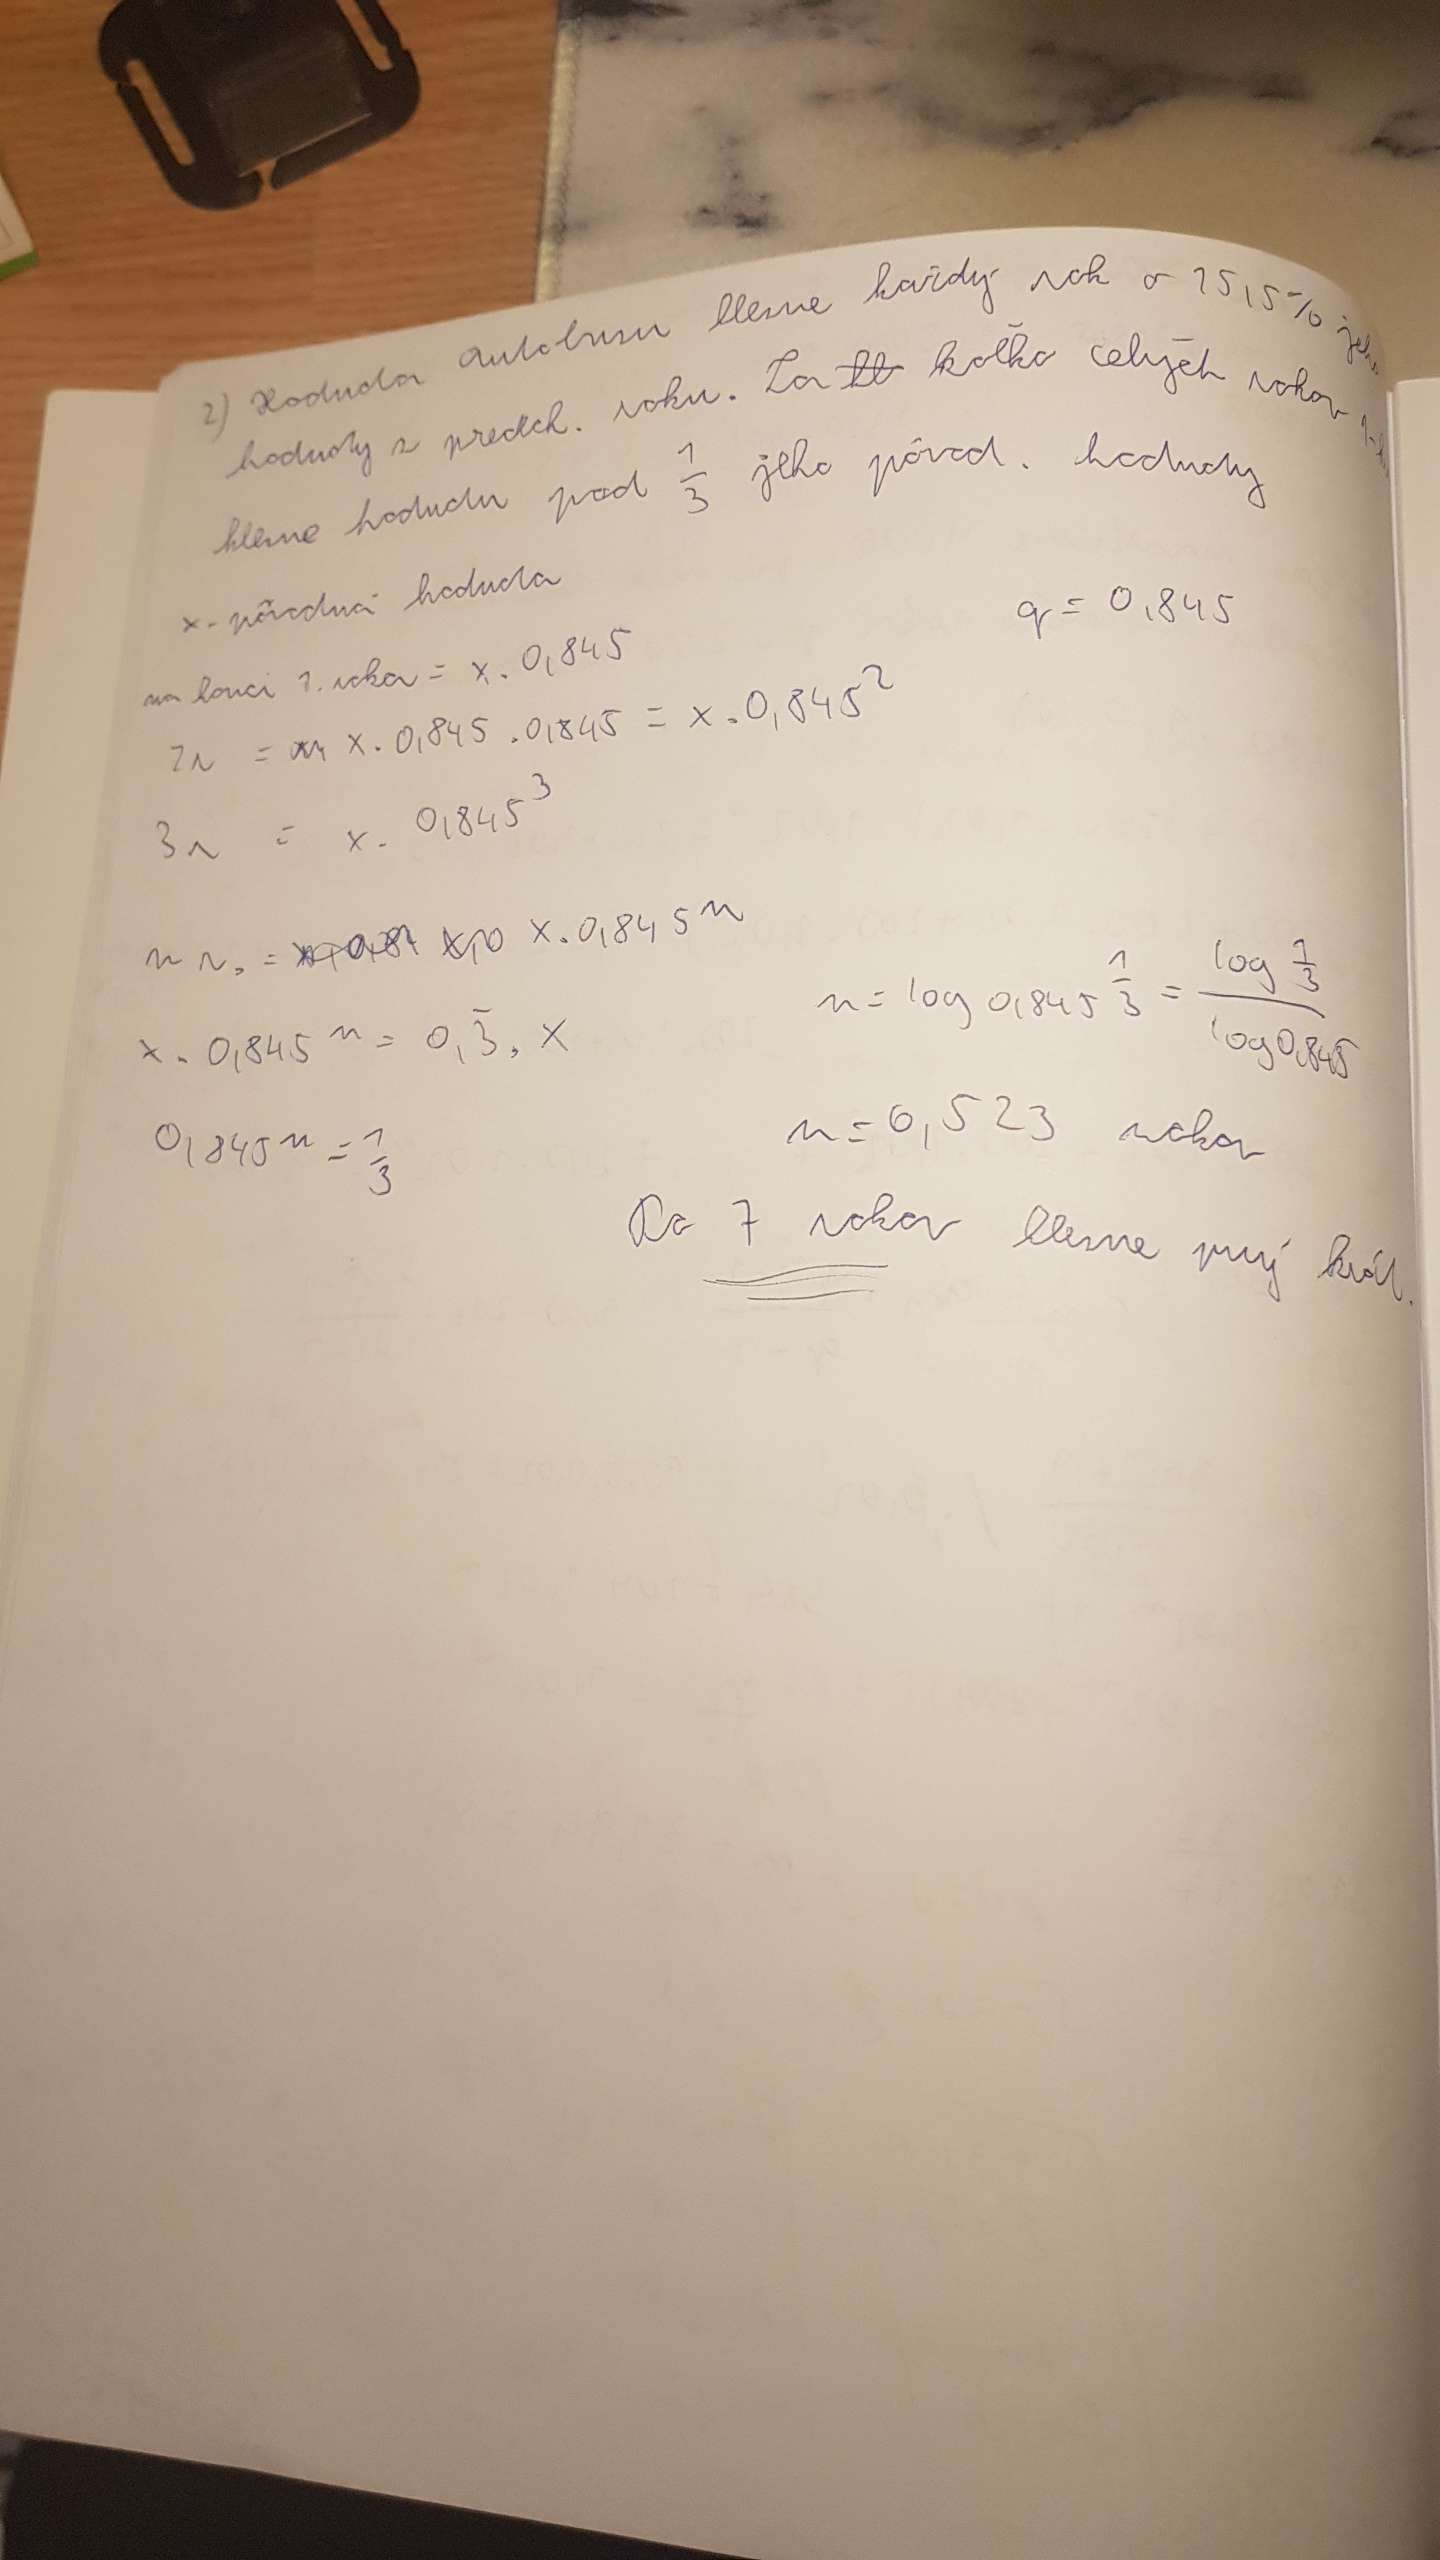 2) Hodnota autobusu klesne každý rok o 15,5% jeho
hodnoty z predch. roku. Za koľko celých rokov
klesne hodnota pod 1/3 jeho pôvod. hodnoty
x - pôvodná hodnota
q = 0,845
na konci 1. roka = x . 0,845
2r = x . 0,845 . 0,845 = x . 0,845²
3r = x . 0,845³
n r. = x . 0,845ⁿ
x . 0,845ⁿ = 0,3̄ . x
n = log 0,845 1/3 = log 1/3 / log 0,845
0,845ⁿ = 1/3
n = 6,523 rokov
Za 7 rokov klesne prvý krát.